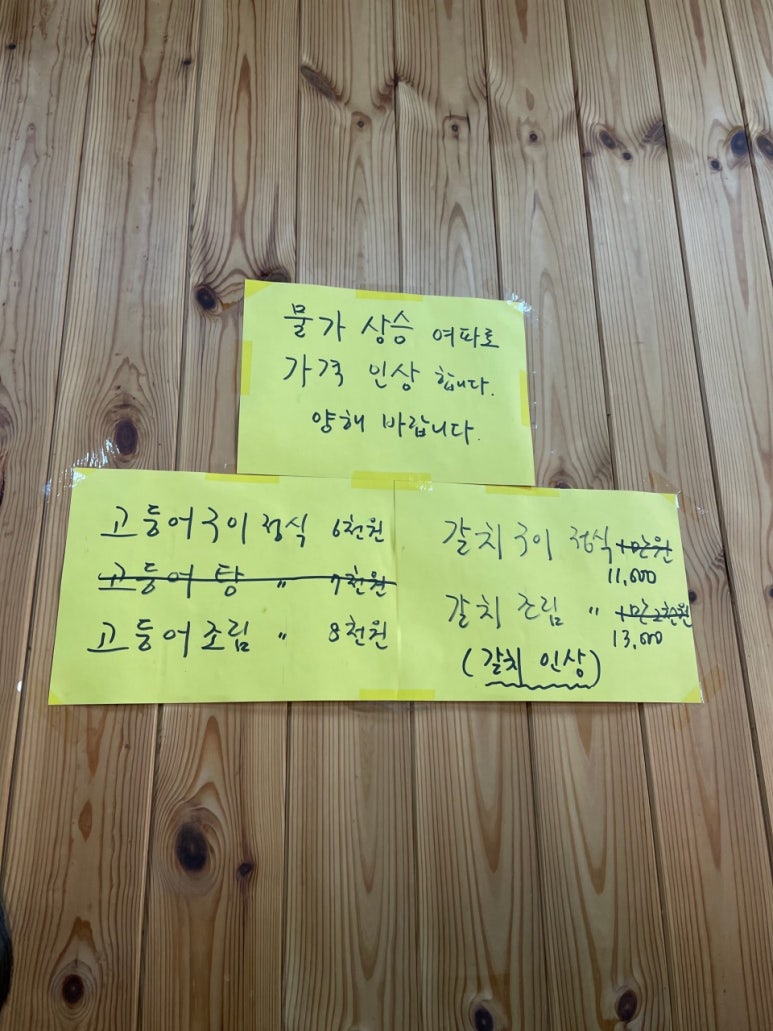 물가 상승 여파로
가격 인상 합니다.
양해 바랍니다.
고등어구이 정식 6천원
고등어 탕 〃 7천원
고등어조림 〃 8천원
갈치구이 정식 1만원
11,000
갈치 조림 〃 1만2천원
13,000
(갈치 인상)